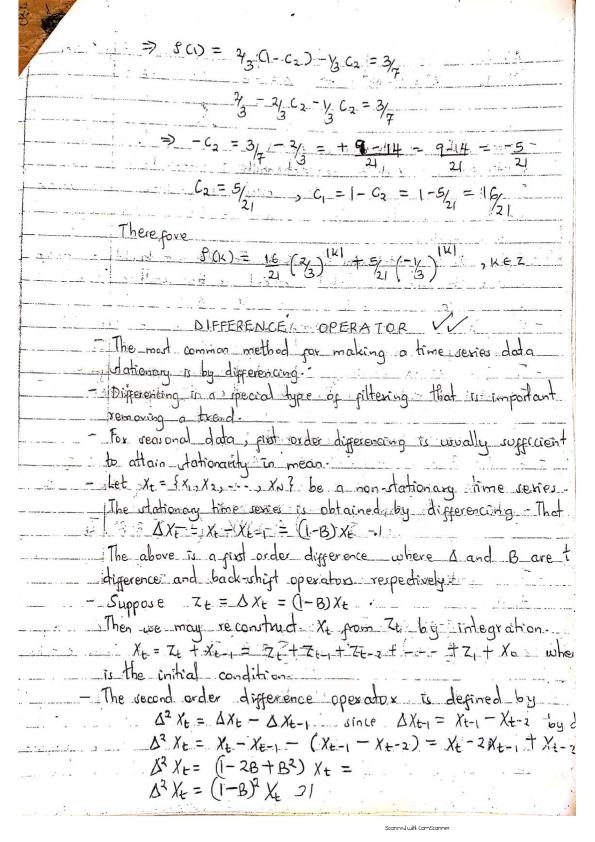 ⇒ ρ(1) = 2/3 (1 - C₂) - 1/3 C₂ = 3/7
2/3 - 2/3 C₂ - 1/3 C₂ = 3/7
⇒ -C₂ = 3/7 - 2/3 = + 9 - 14 / 21 = 9-14 / 21 = -5 / 21
C₂ = 5/21 , C₁ = 1 - C₂ = 1 - 5/21 = 16/21
Therefore
ρ(k) = 16/21 (2/3)^|k| + 5/21 (-1/3)^|k| , k ∈ Z
DIFFERENCE OPERATOR ✓✓
- The most common method for making a time series data
stationary is by differencing.
- Differenting is a special type of filtering that is important
removing a trend.
- For seasonal data, first order differencing is usually sufficient
to attain stationarity in mean.
- Let Xt = {X₁, X₂, ---, XN} be a non-stationary time series.
The stationary time series is obtained by differencing. That
ΔXt = Xt - Xt-1 = (1-B)Xt -1
The above is a first order difference where Δ and B are t
difference and back-shift operators respectively.
- Suppose Zt = ΔXt = (1-B)Xt .
Then we may reconstruct Xt from Zt by integration.
Xt = Zt + Xt-1 = Zt + Zt-1 + Zt-2 + --- + Z1 + X0 whe
is the initial condition.
- The second order difference operator is defined by
Δ² Xt = ΔXt - ΔXt-1 since ΔXt-1 = Xt-1 - Xt-2 by d
Δ² Xt = Xt - Xt-1 - (Xt-1 - Xt-2) = Xt - 2Xt-1 + Xt-2
Δ² Xt = (1 - 2B + B²) Xt =
Δ² Xt = (1-B)² Xt 21
Scanned with CamScanner